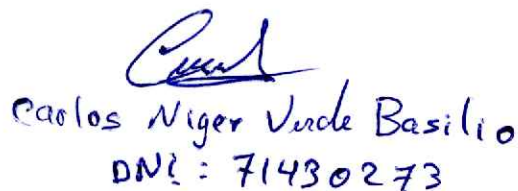 Carlos Niger Verde Basilio
DNI: 71430273